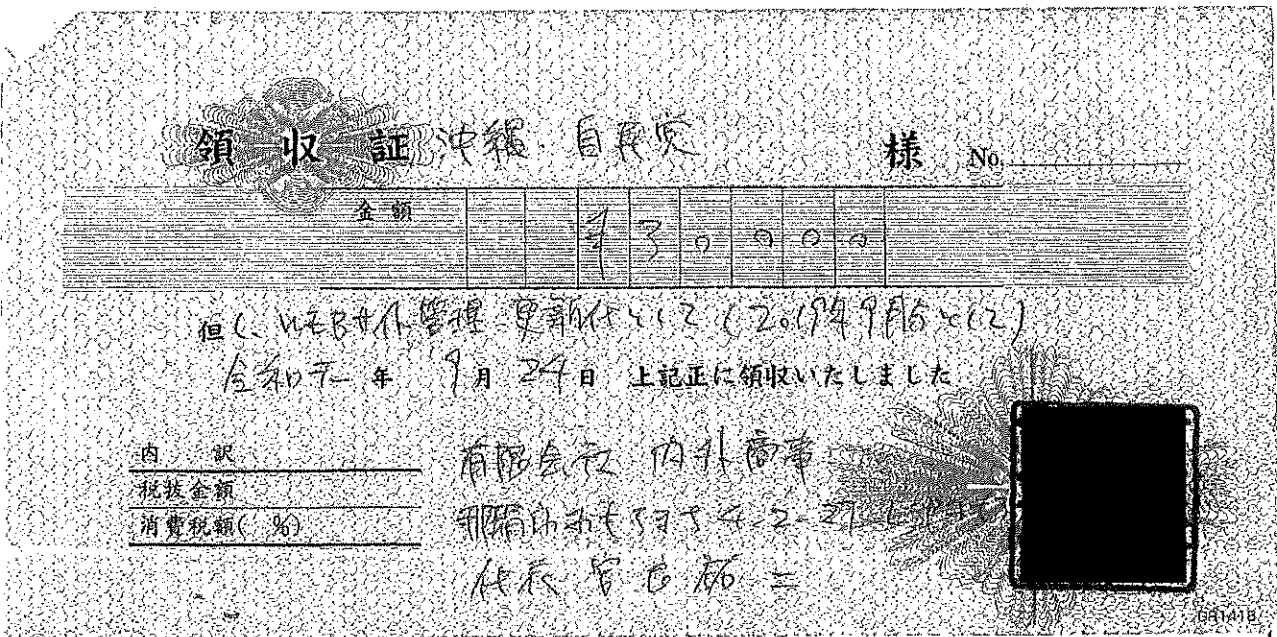 領収証 沖縄・自民党 様 No.
金額 ¥30,000
但し、WEBサイト管理・更新代として(2019年9月分として)
令和元年 9月24日 上記正に領収いたしました
内訳
税抜金額
消費税額( %)
有限会社 内外商事
那覇市おもろまち4-2-27
代表